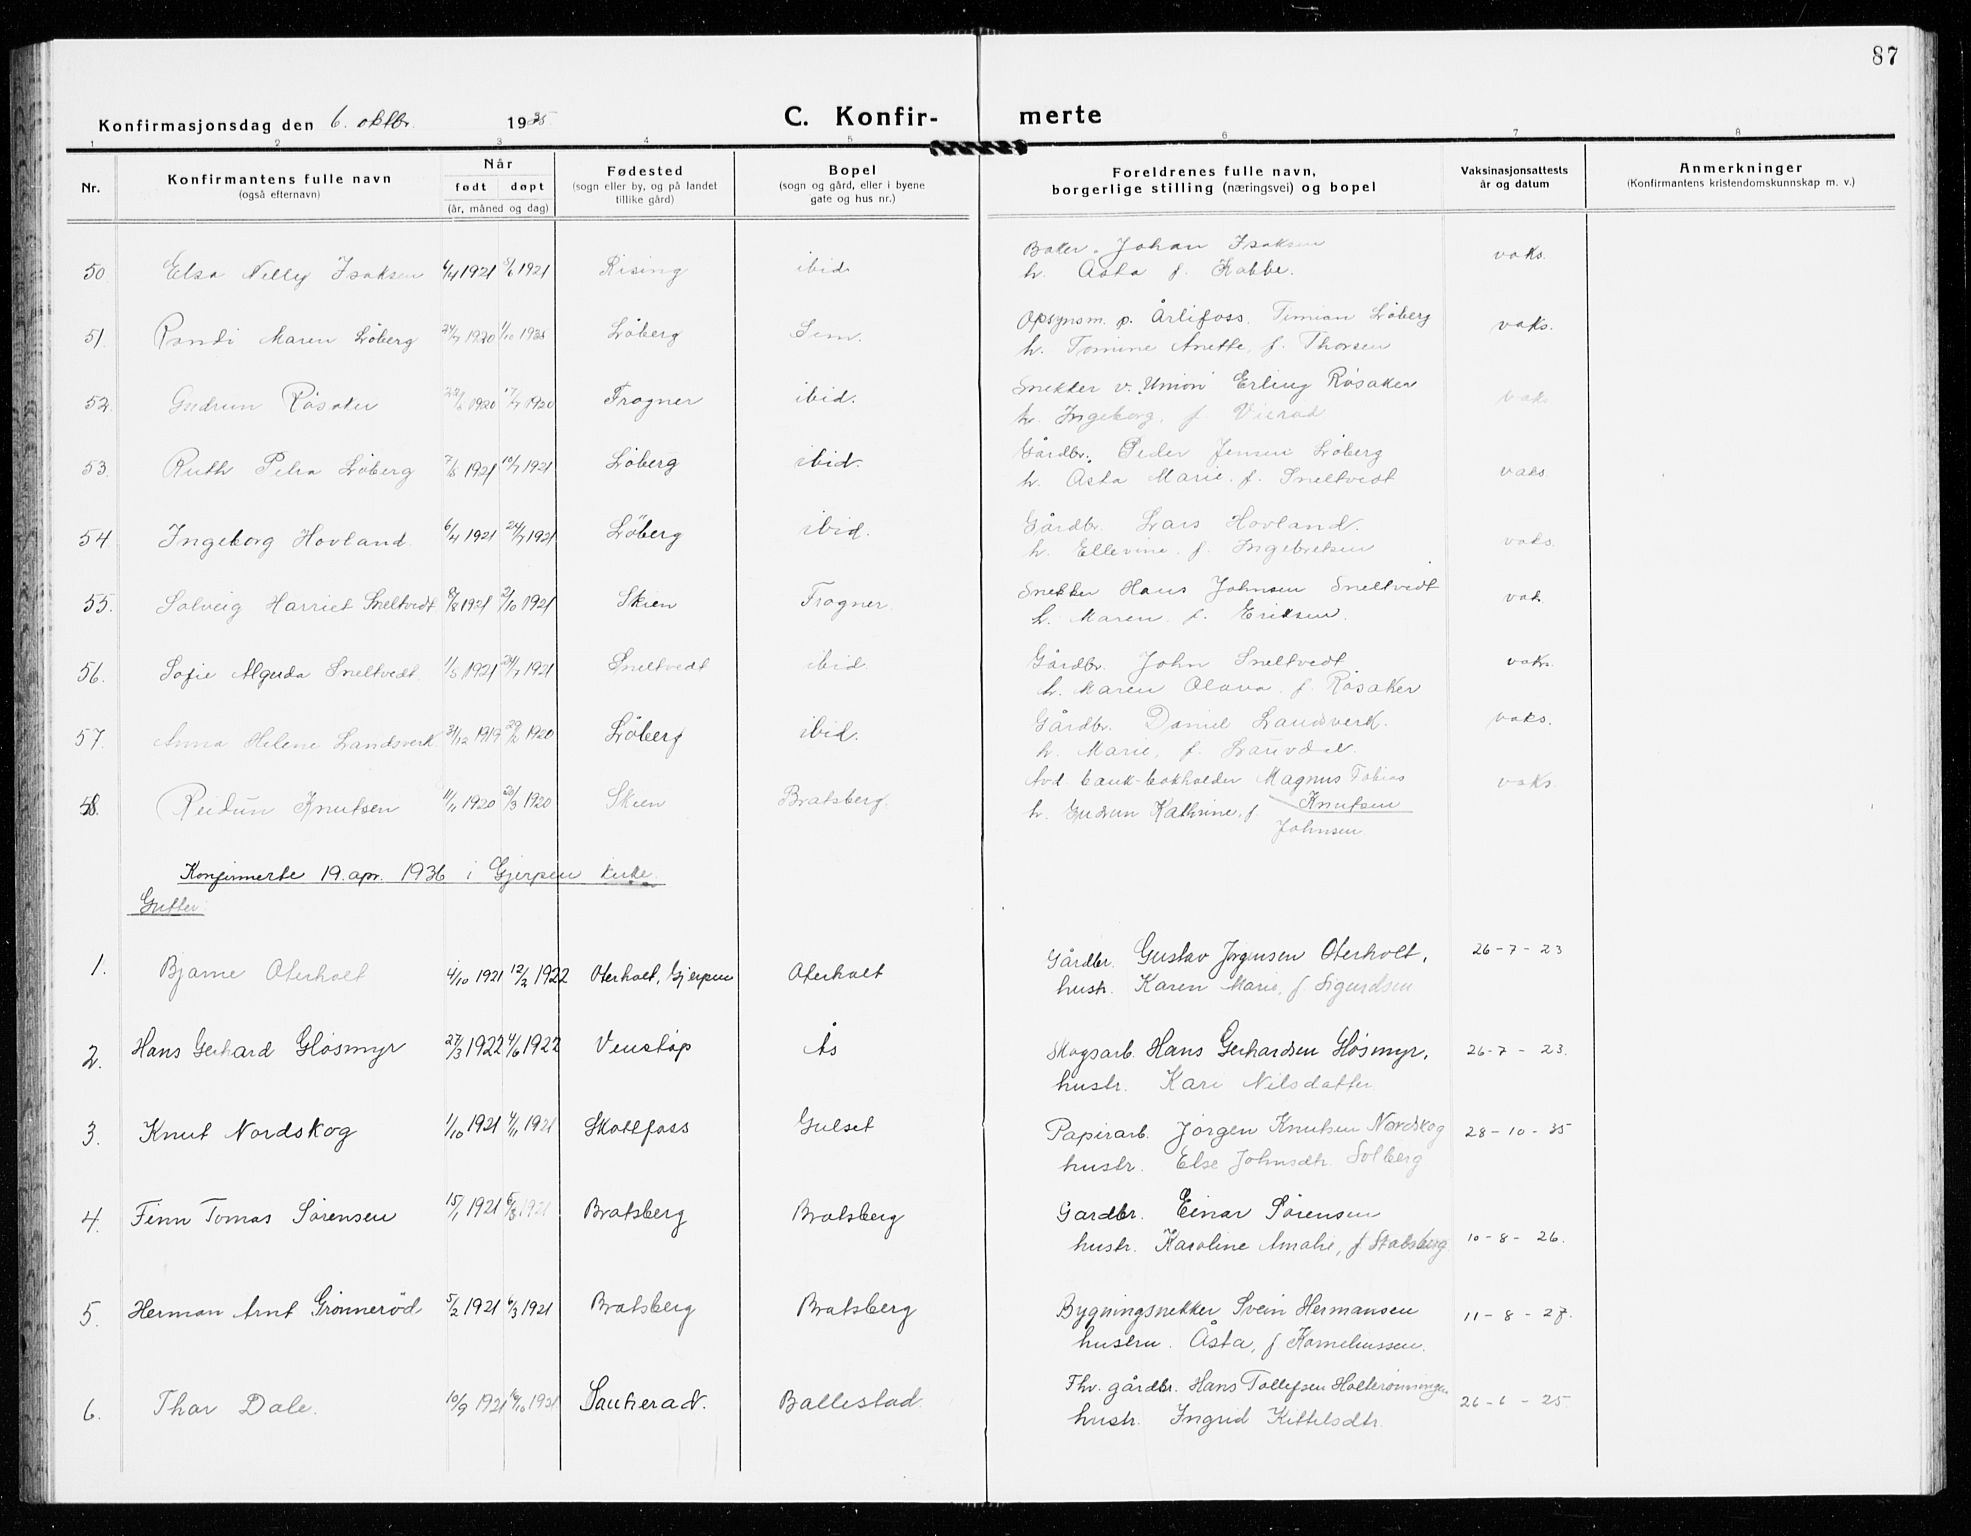 87
Konfirmasjonsdag den 6. oktbr. 1935
C. Konfir- merte
1 2 3 4 5 6 7 8
Nr.
Konfirmantens fulle navn
(også efternavn)
Når
født døpt
(år, måned og dag)
Fødested
(sogn eller by, og på landet
tillike gård)
Bopel
(sogn og gård, eller i byene
gate og hus nr.)
Foreldrenes fulle navn,
borgerlige stilling (næringsvei) og bopel
Vaksinasjonsattests
år og datum
Anmerkninger
(Konfirmantens kristendomskunnskap m. v.)
50 Elsa Nelly Isaksen 6/4 1921 1921 Rising ibid. Baker Johan Isaksen vaks.
h. Asta f. Kabbe.
51. Randi Maren Löberg 24/7 1920 1/10 1935 Löberg Sem. Opsynsm. p. Årlifoss. Timian Löberg vaks.
h. Tomine Anette, f. Thorsen
52. Gudrun Røsaker 1920 17/7 1920 Frogner ibid. Snekker v. "Union" Erling Røsaker vaks
h. Ingeborg, f. Vierød
53. Ruth Petra Löberg 7/5 1921 10/7 1921 Löberg ibid. Gårdbr. Peder Jensen Löberg vaks
h. Asta Marie. f. Sneltvedt
54. Ingeborg Hovland 6/4 1921 24/7 1921 Löberg ibid. Gårdbr. Lars Hovland. vaks.
h. Ellevine. f. Ingebretsen
55. Solveig Harriet Sneltvedt 8/8 1921 2/10 1921 Skien Frogner. Snekker Hans Johnsen Sneltvedt vak
h. Maren. f. Eriksen.
56. Sofie Alguda Sneltvedt 1/5 1921 24/7 1921 Sneltvedt ibid Gårdbr. John Sneltvedt vaks.
h. Maren Olava. f. Røsaker
57. Anna Helene Landsverk 31/12 1919 29/2 1920 Löberg ibid. Gårdbr. Daniel Landsverk. vaks.
h. Marie, f. Lauvdal.
58. Reidun Knutsen 11/1 1920 1920 Skien Bratsberg. Avd. bank-bokholder Magnus Tobias vaks.
Knutsen
h. Gudrun Kathrine. f. Johnsen.
Konfirmerte 19. apr. 1936 i Gjerpen kirke.
Gutter
1. Bjarne Oterholt 4/10 1921 12/2 1922 Oterholt, Gjerpen Oterholt Gårdbr. Gustav Jørgensen Oterholt, 26-7-23
hustr. Karen Marie, f. Sigurdsen
2. Hans Gerhard Gløsmyr 27/3 1922 4/6 1922 Venstøp Ås Skogsarb. Hans Gerhardsen Gløsmyr, 26-7-23.
hustr. Kari Nilsdatter
3. Knut Nordskog 1/10 1921 4/11 1921 Skotfoss Gulset Papirarb. Jørgen Knutsen Nordskog 28-10-35
hustr. Else Johnsdtr. Solberg
4. Finn Tomas Sørensen 15/1 1921 6/3 1921 Bratsberg Bratsberg Gardbr. Einar Sørensen
hustr. Karoline Amalie, f. Stabsberg 10-8-26.
5. Herman Arnt Grønnerød 5/2 1921 6/3 1921 Bratsberg Bratsberg Bygningsnekker Svein Hermansen 11-8-27.
hustru. Åsta, f Korneliussen.
6. Thor Dale. 10/9 1921 16/10 1921 Sauherad. Ballestad. Fhv. gårdbr. Hans Tollefsen Holterønningen 26-6-25.
hustr. Ingrid Kittilsdtr.